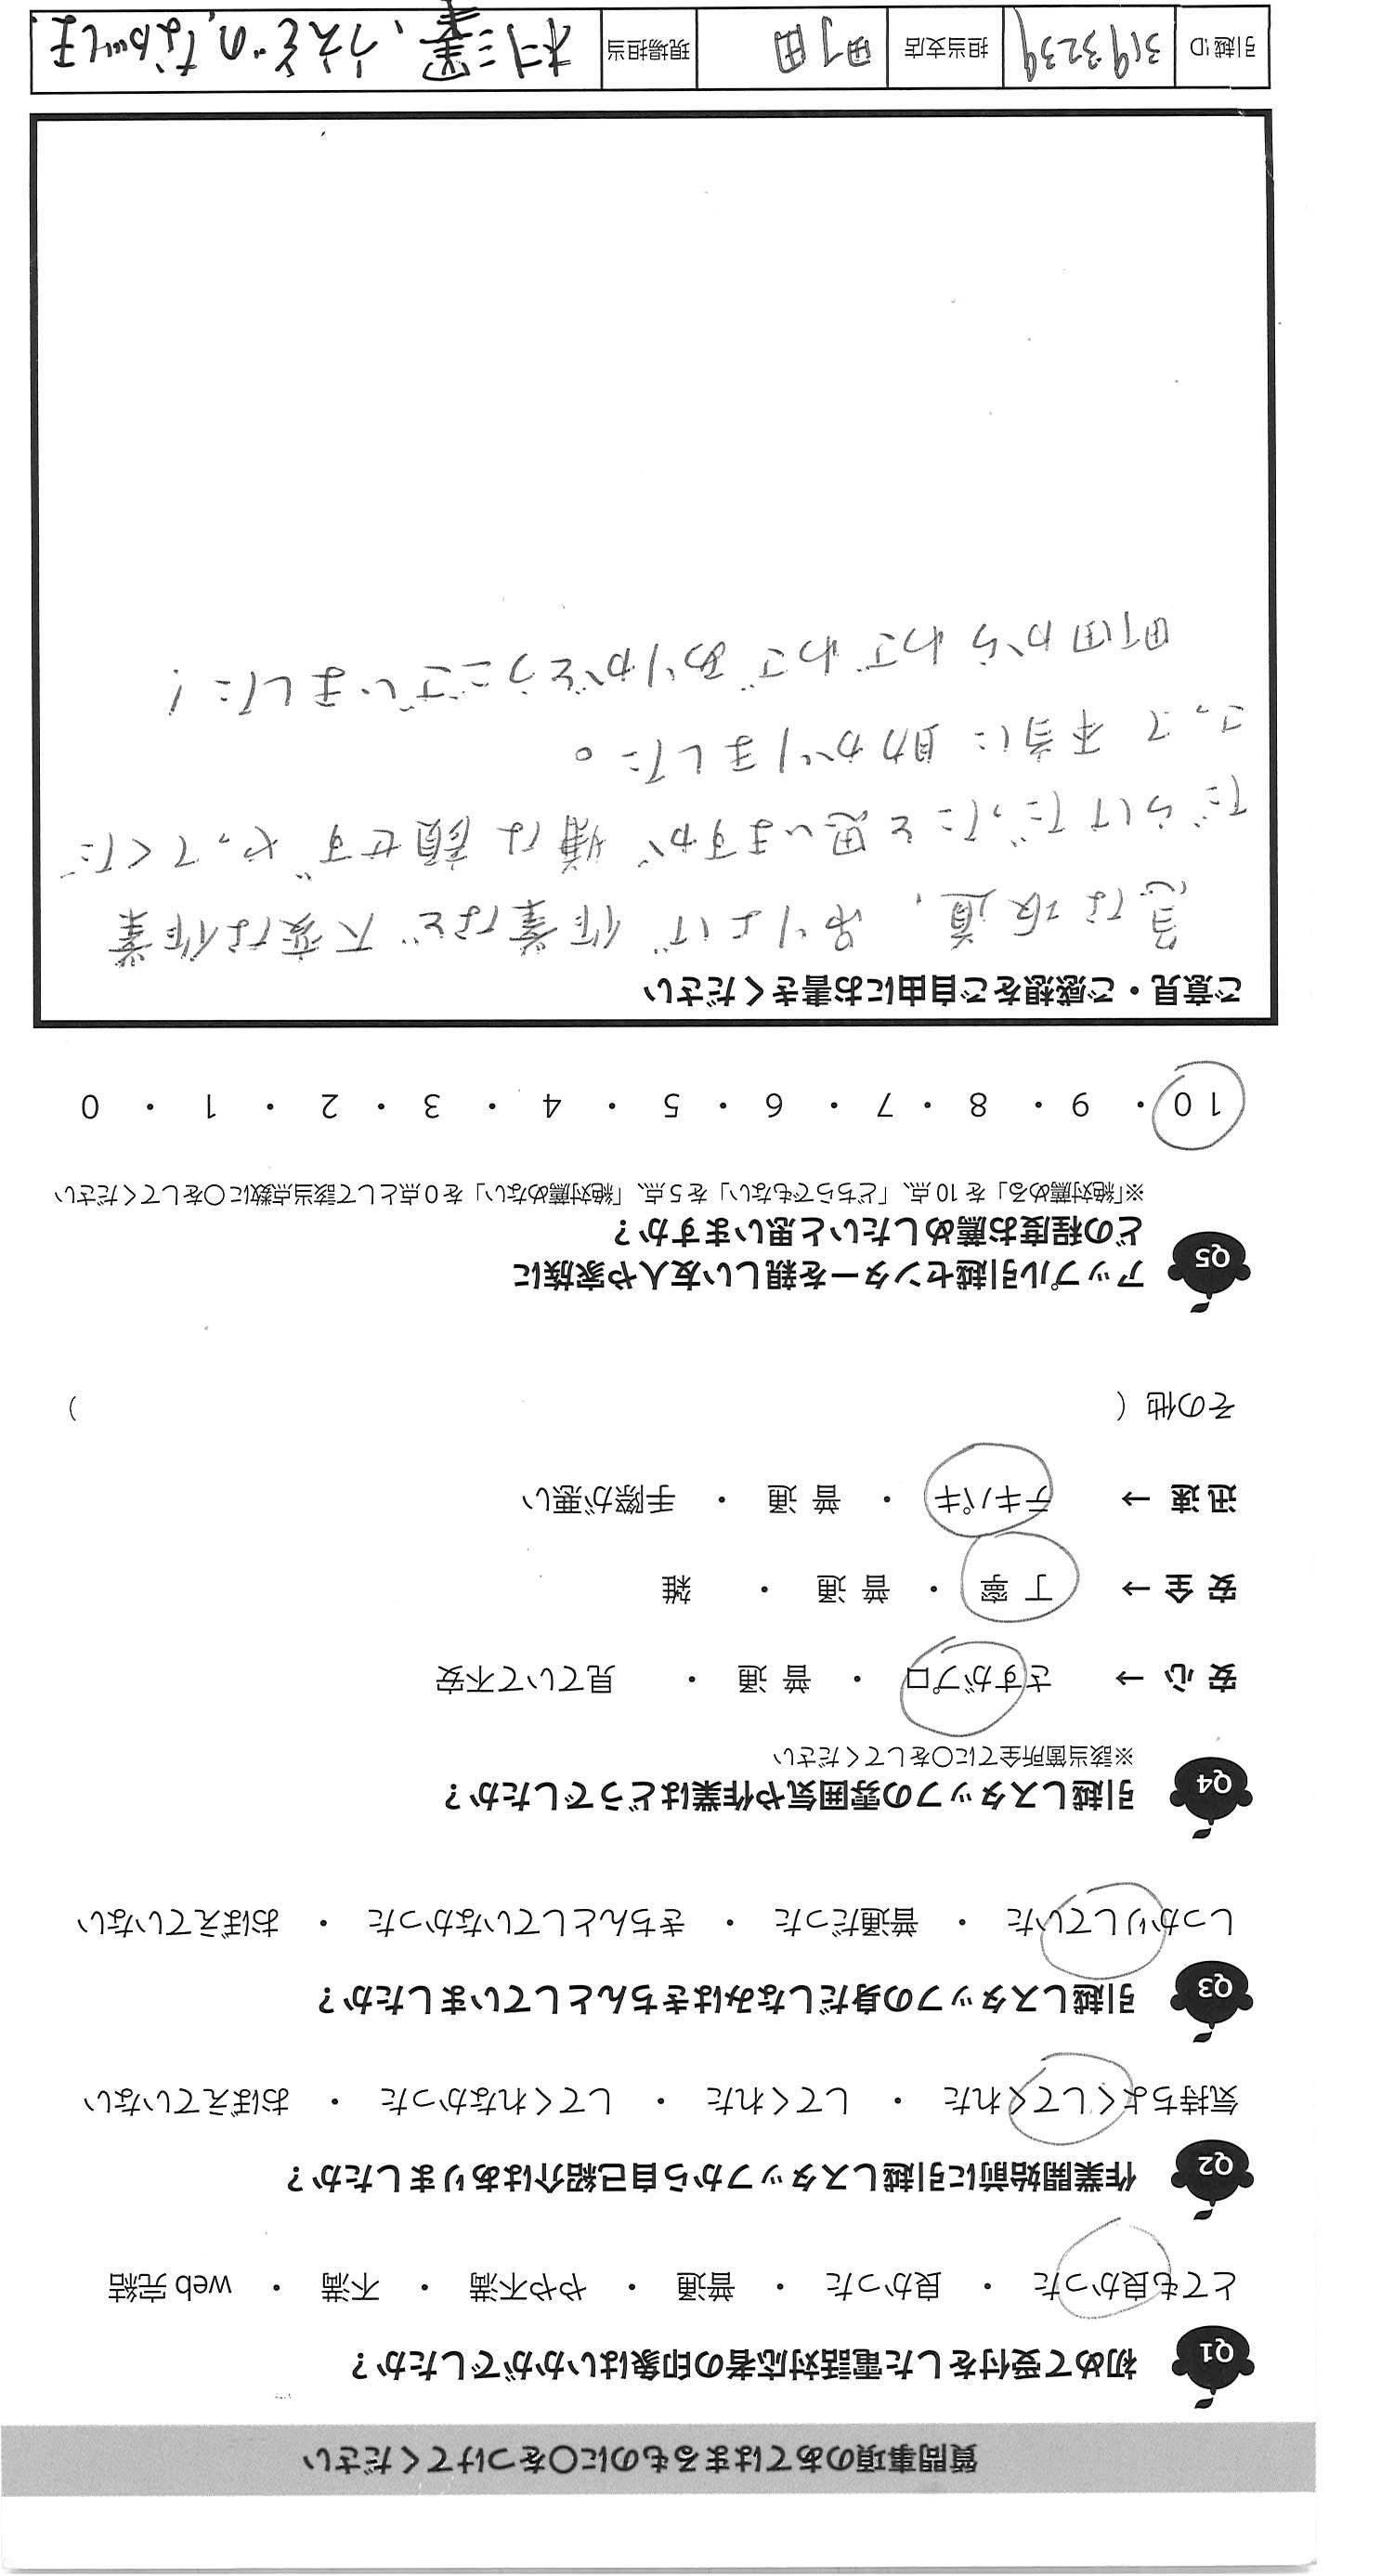 質問事項のあてはまるものに○をつけてください
Q1 初めて受付をした電話対応者の印象はいかがでしたか？
とても良かった ・ 良かった ・ 普通 ・ やや不満 ・ 不満 ・ web 完結
Q2 作業開始前に引越しスタッフから自己紹介はありましたか？
気持ちよくしてくれた ・ してくれた ・ してくれなかった ・ おぼえていない
Q3 引越しスタッフの身だしなみはきちんとしていましたか？
しっかりしていた ・ 普通だった ・ きちんとしていなかった ・ おぼえていない
Q4 引越しスタッフの雰囲気や作業はどうでしたか？
※該当箇所全てに○をしてください
安心 → さすがプロ ・ 普通 ・ 見ていて不安
安全 → 丁寧 ・ 普通 ・ 雑
迅速 → テキパキ ・ 普通 ・ 手際が悪い
その他 （ ）
Q5 アップル引越センターを親しい友人や家族に
どの程度お薦めしたいと思いますか？
※「絶対薦める」を 10 点、「どちらでもない」を 5 点、「絶対薦めない」を 0 点として該当点数に○をしてください
10 ・ 9 ・ 8 ・ 7 ・ 6 ・ 5 ・ 4 ・ 3 ・ 2 ・ 1 ・ 0
ご意見・ご感想をご自由にお書きください
急な坂道、吊り上げ作業など大変な作業
だらけだったと思いますが 嫌な顔せず やってくだ
さって 本当に助かりました。
町田からわざわざありがとうございました！
引越ID 3193239 担当支店 町田 現場担当